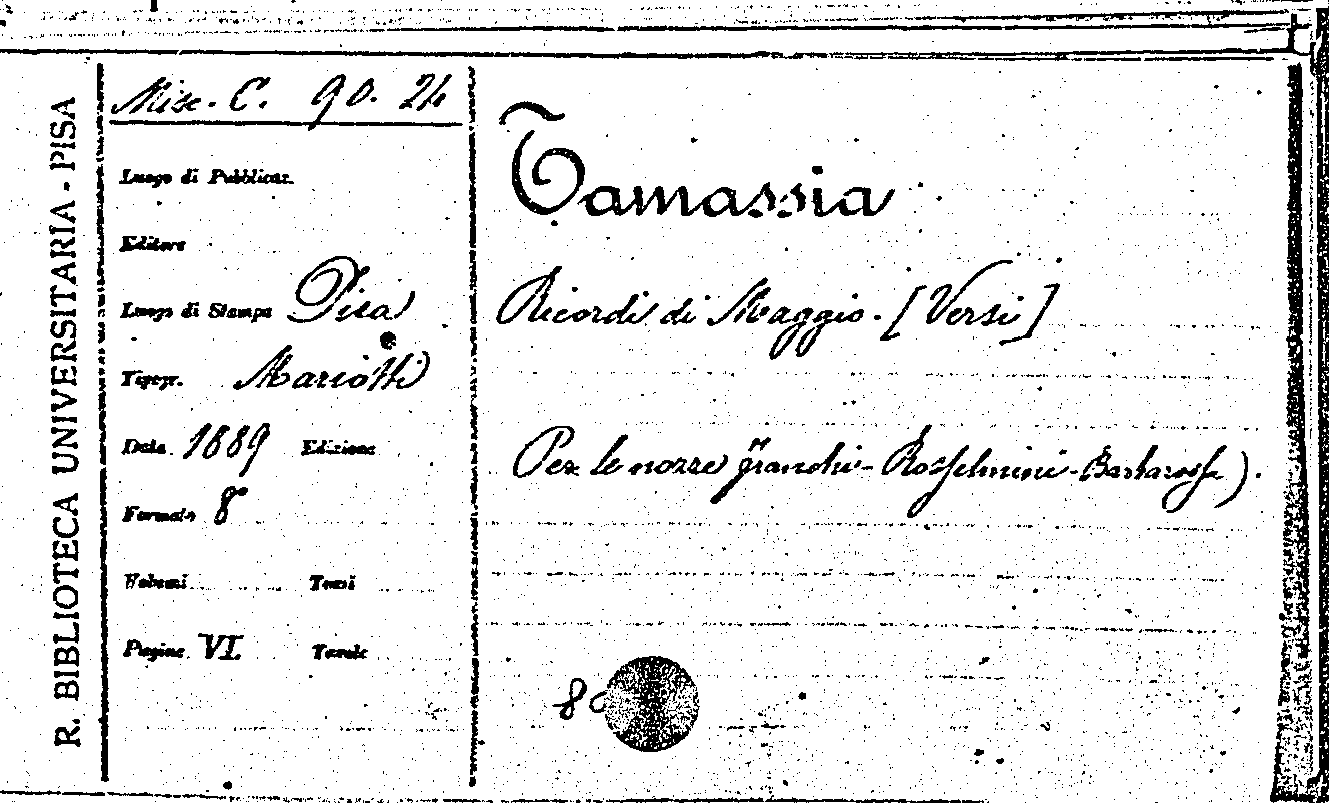 R. BIBLIOTECA UNIVERSITARIA - PISA
Misc. C. 90. 24
Luogo di Pubblicaz.
Editore
Luogo di Stampa Pisa
Tipogr. Mariotti
Data 1889 Edizione
Formato 8°
Volumi Tomi
Pagine VI. Tavole
Tamassia
Ricordi di Maggio. [Versi]
Per le nozze Franchi-Rosselmini-Barbarossa).
8